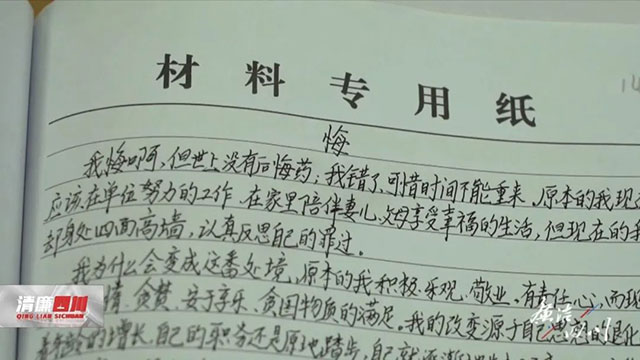 材料专用纸
14
悔
我悔啊,但世上没有后悔药;我错了,可惜时间不能重来,原本的我现
应该在单位努力的工作,在家里陪伴妻儿、父母享受幸福的生活,但现在的我
却身处四面高墙,认真反思自己的罪过。
我为什么会变成这番处境,原本的我积极、乐观、敬业、有责任心,而现
情、贪婪、安于享乐、贪图物质的满足。我的改变源于自己思想的退化
着年龄的增长,自己的职务还是原地踏步,自己就逐渐
清廉四川
QING LIAN SICHUAN
廉洁